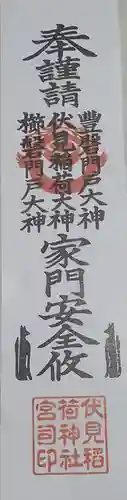 奉謹請
豊磐間戸大神
伏見稲荷大神
櫛磐間戸大神
家門安全攸
伏見稲
荷神社
宮司印